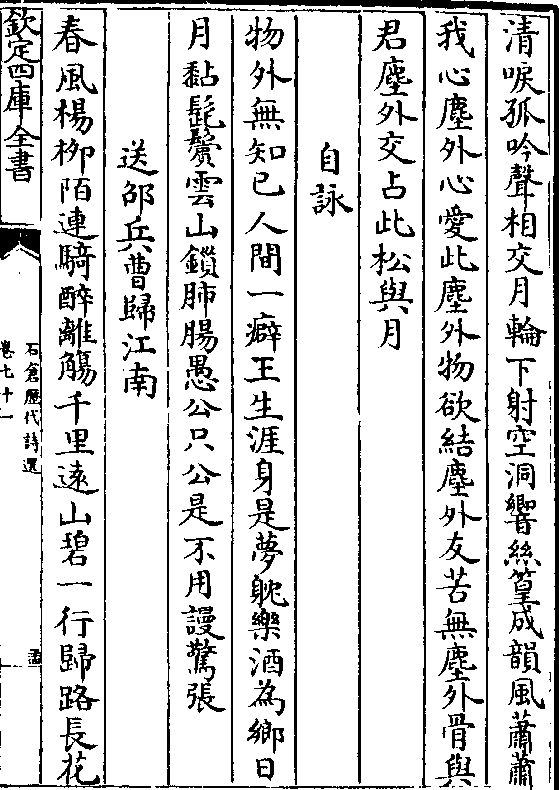 清唳孤吟聲相交月輪下射空洞響絲篁成韻風蕭蕭
我心塵外心愛此塵外物欲結塵外友苦無塵外骨與
君塵外交占此松與月
自詠
物外無知已人間一癖王生涯身是夢躭樂酒為鄉日
月黏髭鬢雲山鎖肺腸愚公只公是不用謾驚張
送邵兵曹歸江南
春風楊栁陌連騎醉離觴千里遠山碧一行歸路長花
欽定四庫全書
石倉歷代詩選
卷七十一